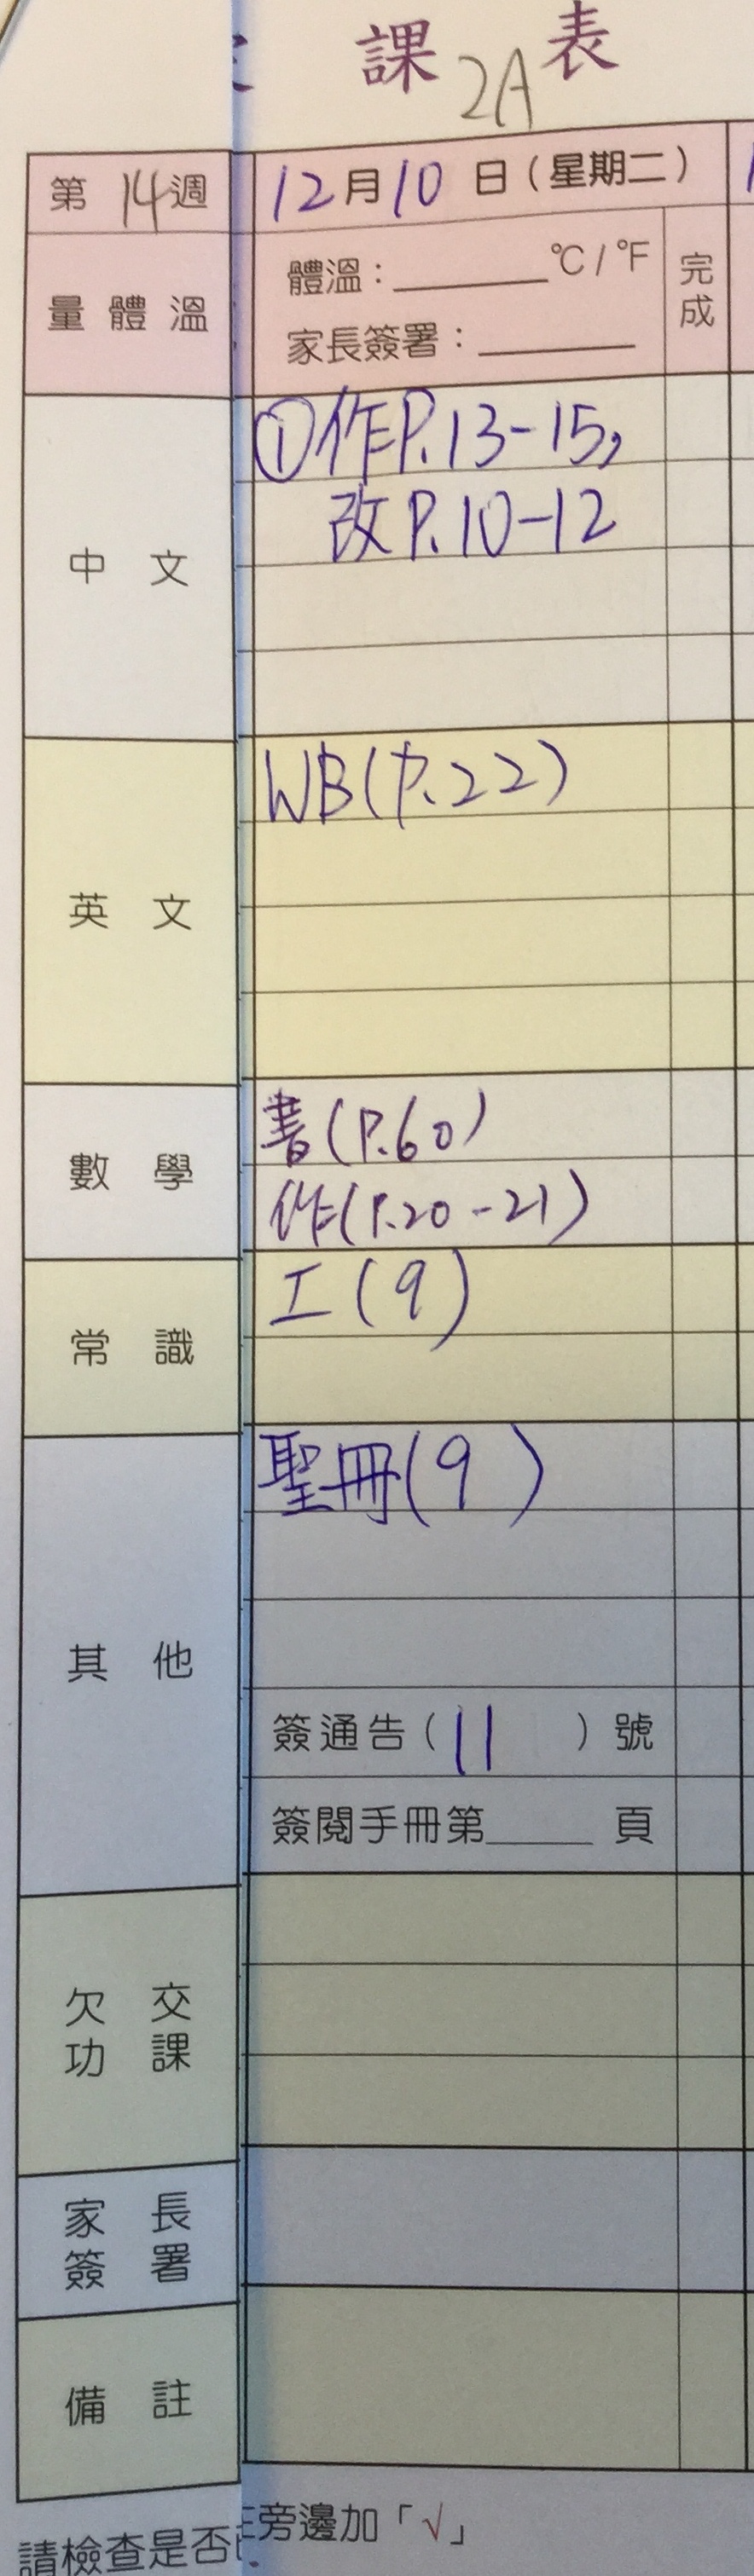 課 2A 表
第 14 週
12 月 10 日(星期二)
量 體 溫
體溫:______ °C / °F
家長簽署:______
完成
中 文
①作P.13-15,
改P.10-12
英 文
WB(P.22)
數 學
書(P.60)
作(P.20-21)
常 識
工(9)
其 他
聖冊(9 )
簽通告( 11 )號
簽閱手冊第____ 頁
欠 交
功 課
家 長
簽 署
備 註
請檢查是否
旁邊加「√」